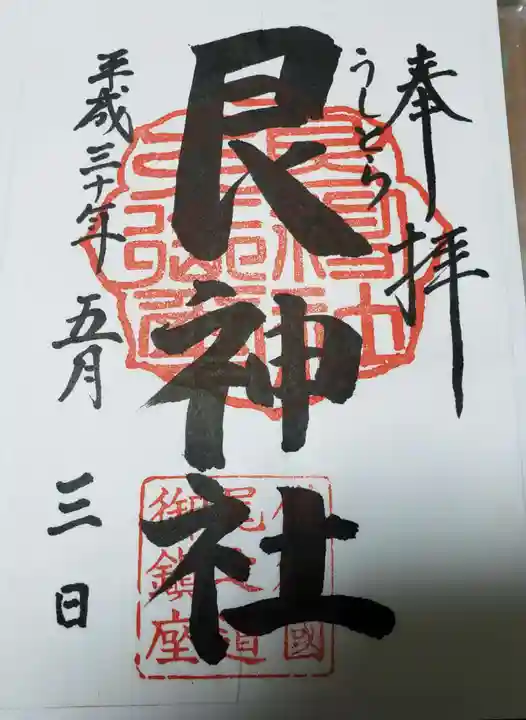 奉拝
うしとら
艮神社
平成三十年
五月
三日
國
尾之道
御鎮座